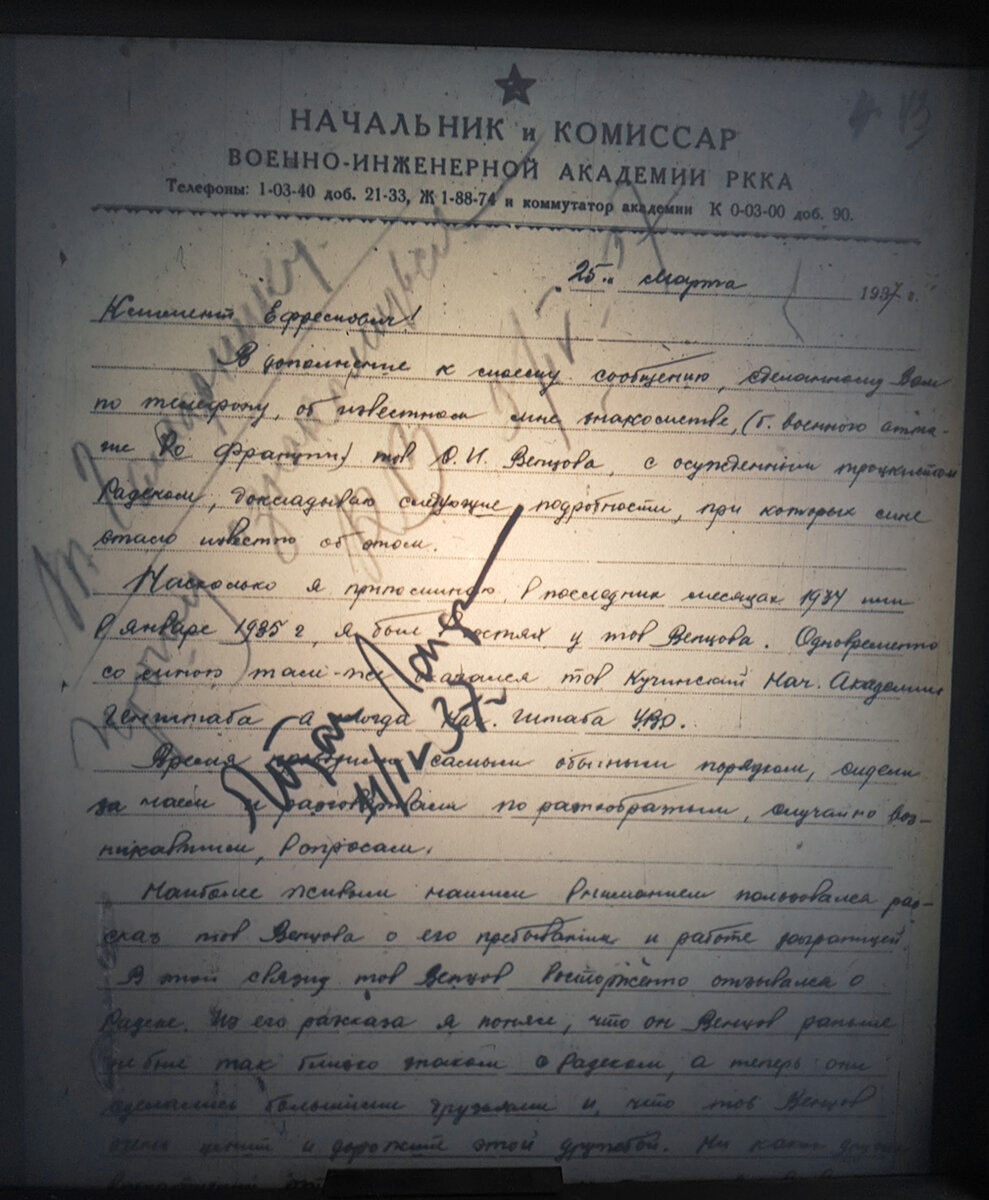 НАЧАЛЬНИК и КОМИССАР
ВОЕННО-ИНЖЕНЕРНОЙ АКАДЕМИИ РККА
Телефоны: 1-03-40 доб. 21-33, Ж 1-88-74 и коммутатор академии К 0-03-00 доб. 90.
"25" марта 1937 г.
Климент Ефремович!
В дополнение к моему сообщению, сделанному Вам
по телефону, об известном мне знакомстве, (б. военного атта-
ше во Франции) тов О. И. Венцова, с осужденным троцкистом
Радеком, докладываю следующие подробности, при которых мне
стало известно об этом.
Насколько я припоминаю, в последних месяцах 1934 или
в январе 1935 г, я был в гостях у тов Венцова. Одновременно
со мною там-же оказался тов Кучинский Нач. Академии
Генштаба а тогда Нач. штаба УВО.
Время самым обычным порядком, сидели
за чаем и разговаривали по разнообразным, случайно воз-
никавшим, вопросам.
Наиболее живым нашим вниманием пользовался раз-
сказ тов Венцова о его пребывании и работе заграницей.
В этой связи тов Венцов восторженно отзывался о
Радеке. Из его разсказа я понял, что он Венцов раньше
не был так близко знаком с Радеком, а теперь они
сделались большими друзьями и, что тов Венцов
очень ценит и дорожит этой дружбой. Ни каких других
11/IV 37